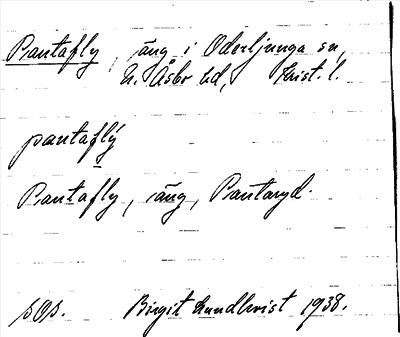 Pantafly, äng i Oderljunga sn,
N. Åsbo hd, Krist. l.
pantaflý
Pantafly, äng, Pantaryd.
sOs. Birgit Lundkvist 1938.